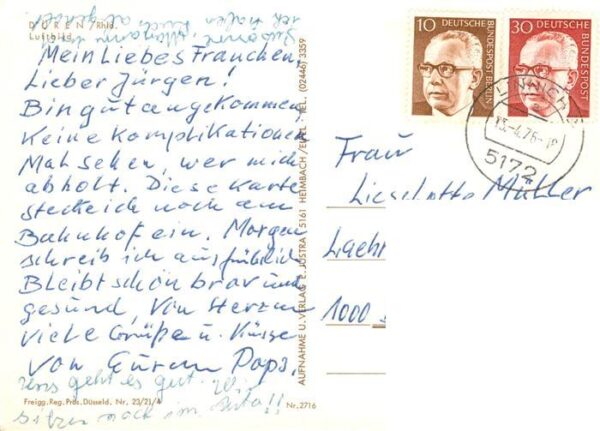 DÜREN/Rhld.
Luftbild
Mein Liebes Frauchen,
Lieber Jürgen!
Bin gut angekommen
Keine Komplikationen
Mal sehen, wer mich
abholt. Diese Karte
stecke ich noch am
Bahnhof ein. Morgen
schreib ich ausführlich
Bleibt schön brav und
gesund, Von Herzen
viele Grüße u. Küsse
von Eurem Papa.
uns geht es gut. Wir
sitzen noch im Auto!!
Freigg. Reg. Präs. Düsseld. Nr. 23/21/4
Nr. 2716
AUFNAHME U. VERLAG E. JUSTRA, 5161 HEIMBACH/EIFEL · TEL. (02446) 3359
10
DEUTSCHE
BUNDESPOST BERLIN
30
DEUTSCHE
BUNDESPOST
5172
Frau
Lieselotte Müller
Laehr
1000